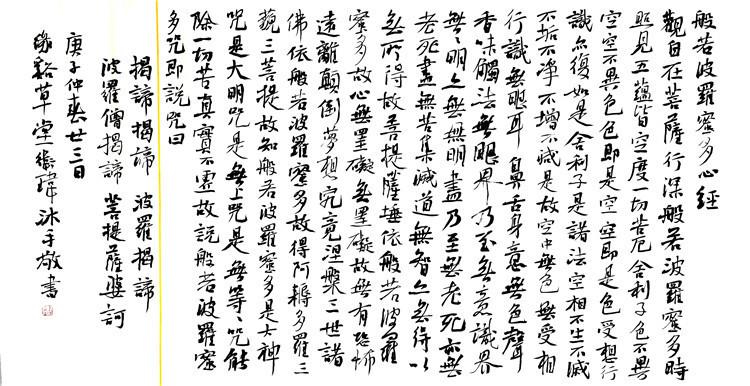 般若波羅蜜多心經
觀自在菩薩行深般若波羅蜜多時
照見五蘊皆空度一切苦厄舍利子色不異
空空不異色色即是空空即是色受想行
識亦復如是舍利子是諸法空相不生不滅
不垢不淨不增不減是故空中無色無受相
行識無眼耳鼻舌身意無色聲
香味觸法無眼界乃至無意識界
無無明亦無無明盡乃至無老死亦無
老死盡無苦集滅道無智亦無得以
無所得故菩提薩埵依般若波羅
蜜多故心無罣礙無罣礙故無有恐怖
遠離顛倒夢想究竟涅槃三世諸
佛依般若波羅蜜多故得阿耨多羅三
藐三菩提故知般若波羅蜜多是大神
咒是大明咒是無上咒是無等等咒能
除一切苦真實不虛故說般若波羅蜜
多咒即說咒曰
揭諦揭諦 波羅揭諦
波羅僧揭諦 菩提薩婆訶
庚子仲春廿三日
草堂 沐手敬書